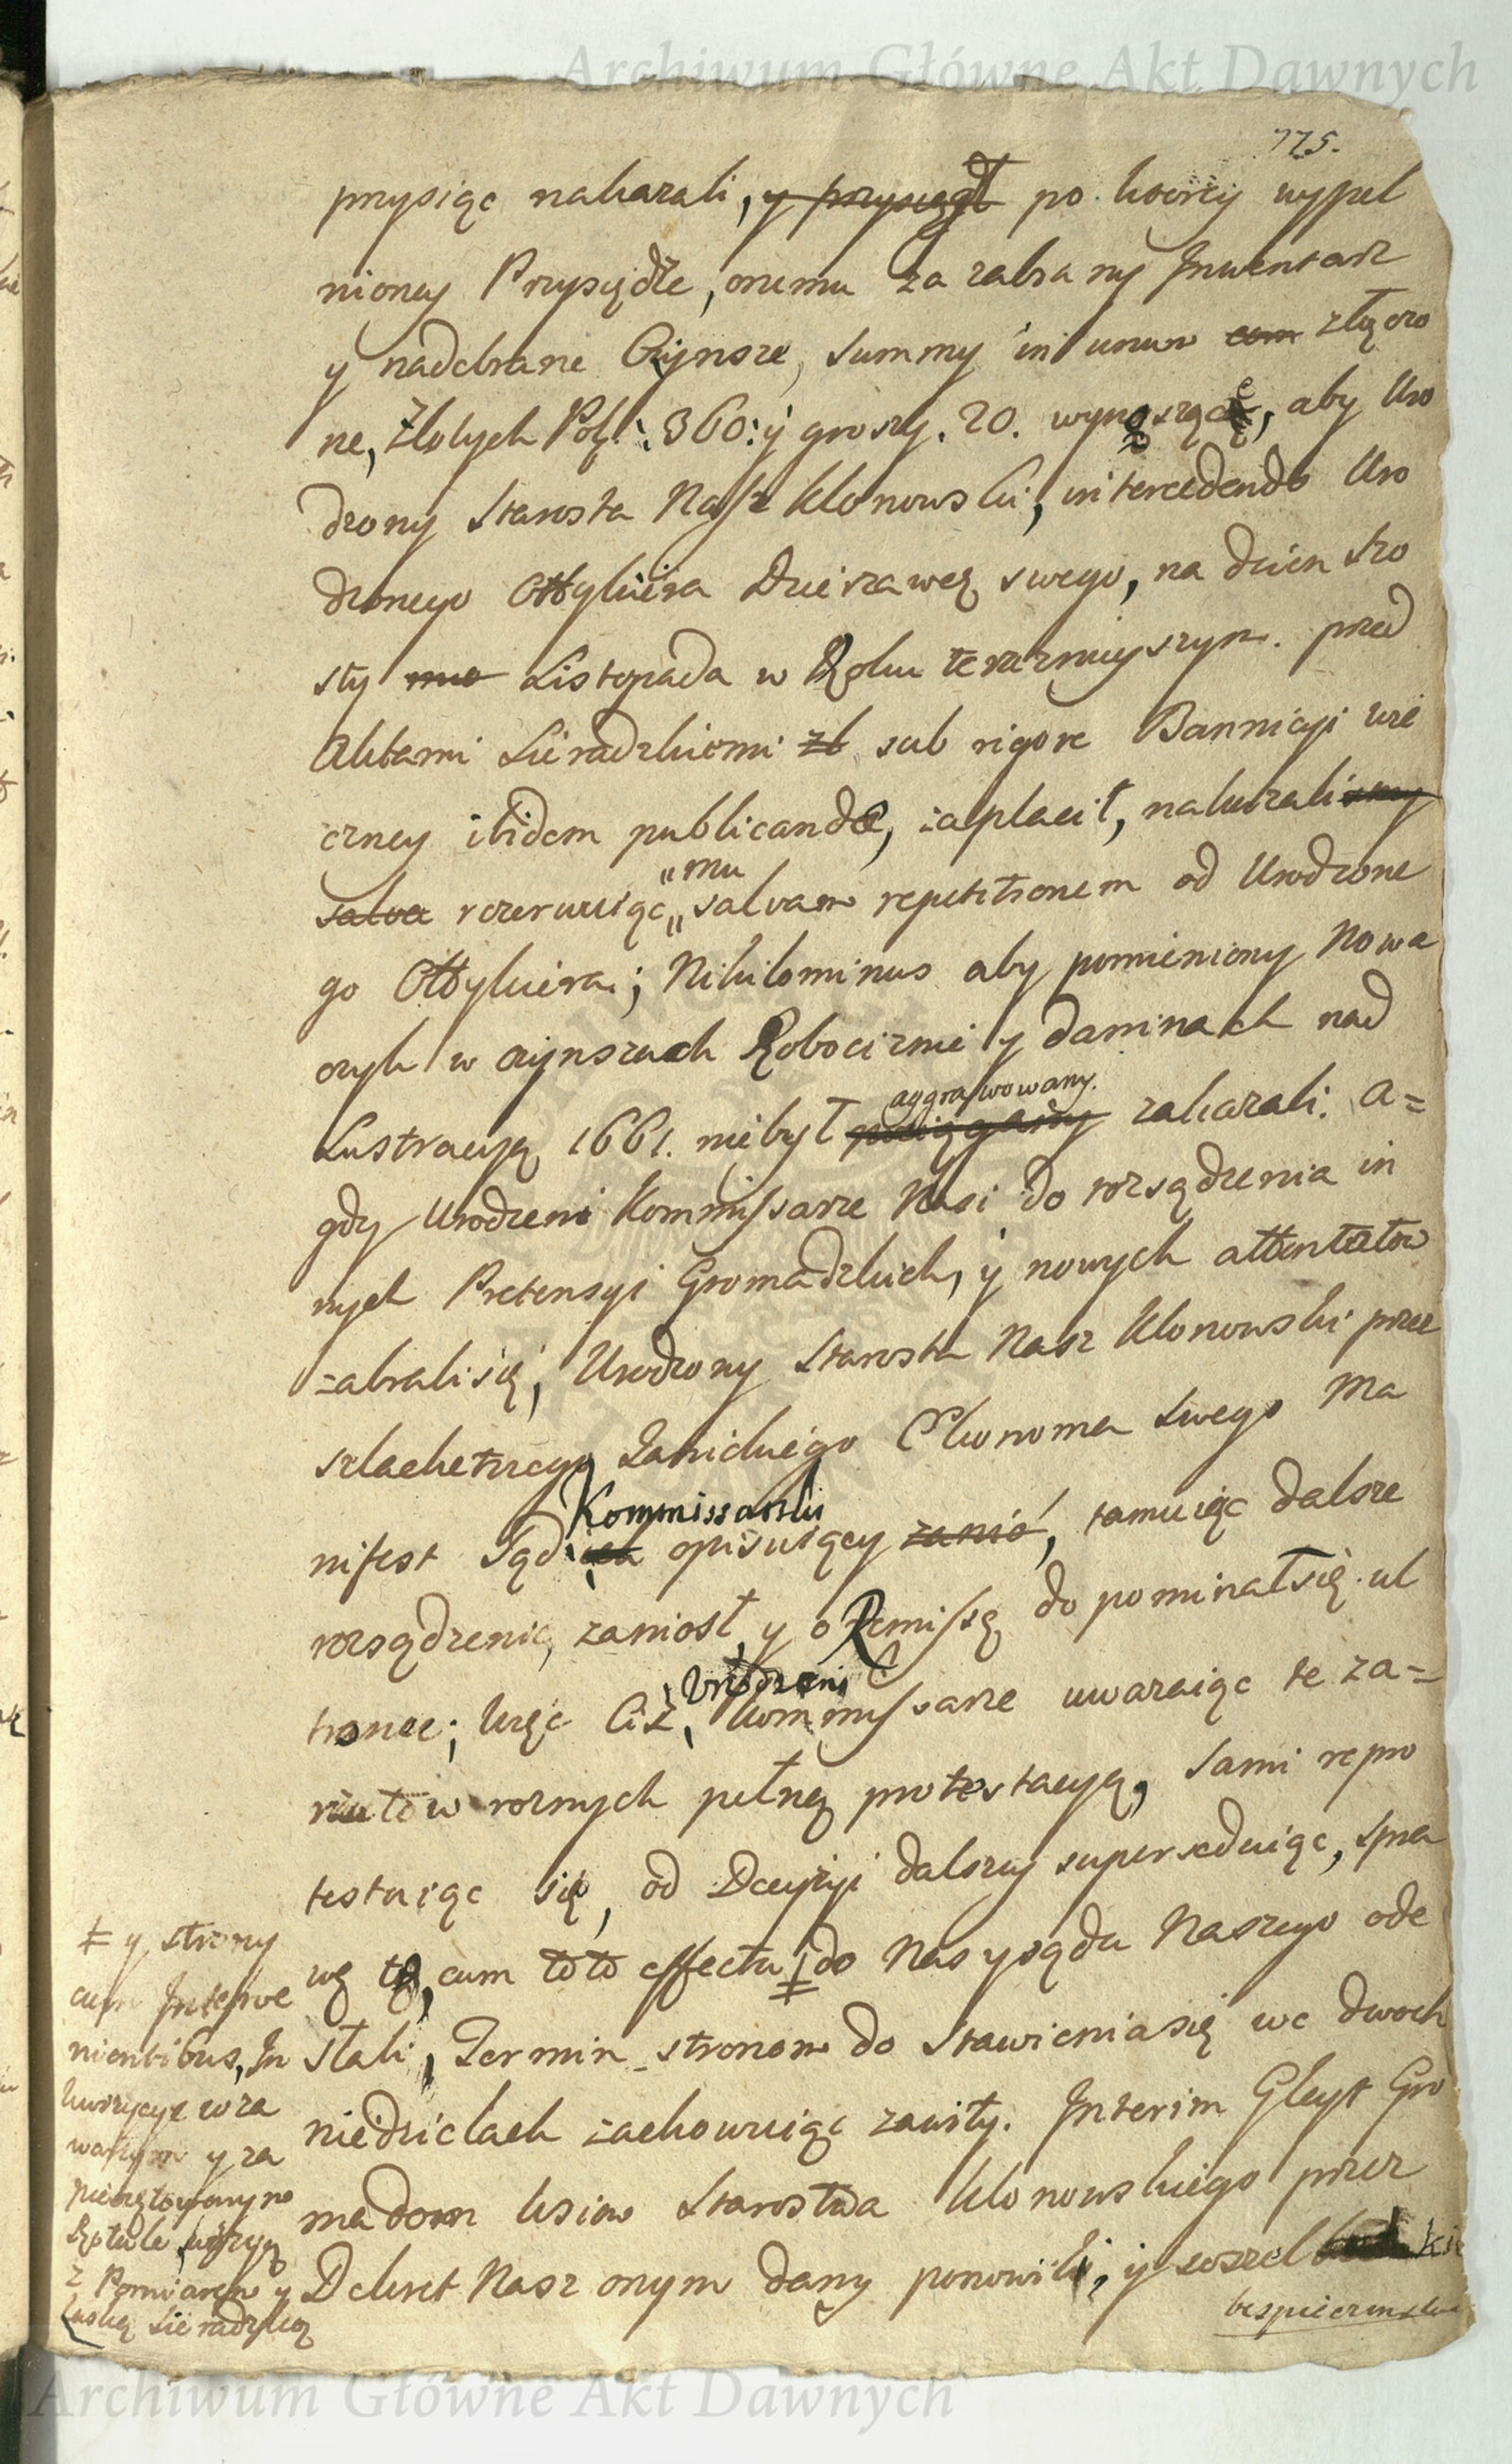 Archiwum Główne Akt Dawnych
775.
przysiąc nakazali, y przysiągł po ktorey wypeł
nioney Przysiędze, onemu za zabrany Inwentarz
y nadebrane Czynsze, summy in unum com złączo
ne, Złotych Pol: 360: y groszy. 20. wynoszące, aby Uro
dzony Starosta Nasz Klonowski, intercedendo Uro
dzonego Ottykiera Dzierzawcę swego, na dzien Szo
sty mc Listopada w Roku terazmieyszym. przed
Aktami Sieradzkiemi zł sub rigore Bannicyi wie
czney ibidem publicandæ, zapłacił, nakazalismy
salva rezerwuiąc „mu„ salvam repetitionem od Urodzone
go Ottykiera; Nihilominus aby pomieniony Nowa
czyk w czynszach Robociznie y daninach nad
Lustracyą 1661. niebył pociągany aggrawowany. zakazali. A=
gdy Urodzeni Kommissarze Nasi do rozsądzenia in
nych Pretensyi Gromadzkich, y nowych attentatow
zabralisię, Urodzony Starosta Nasz Klonowski przez
szlachetnego Janickiego Ekonoma swego Ma
nifest Sąd ich Kommissarski opisuiący zaniosł, tamuiąc dalsze
rozsądzenie, zaniosł y o Remissę do pominałsię. ul
tronee; Więc Ciż, Urodzeni Kommissarze uwazaiąc te za=
rzutow roznych pełną protestacyą, Sami repro
testuiąc się, od Decyzyi dalszey superseduiąc, spra
wę tę, cum toto effectu ‡ do Nas y sądu Naszego ode
słali, Termin stronom do Stawieniasię we dwoch
niedzielach zachowuiąc zawiły. Interim Gleyt Gro
madom wsiow Starostwa Klonowskiego przez
Dekret Nasz onym dany ponowili, y wszel kie
bespieczenstwa
‡ y strony
cum Interve
nientibus, In
kwizycye zora
waszym y za
pieczętowanym
z Pomiarem y
łaską Sieradzką
Archiwum Główne Akt Dawnych